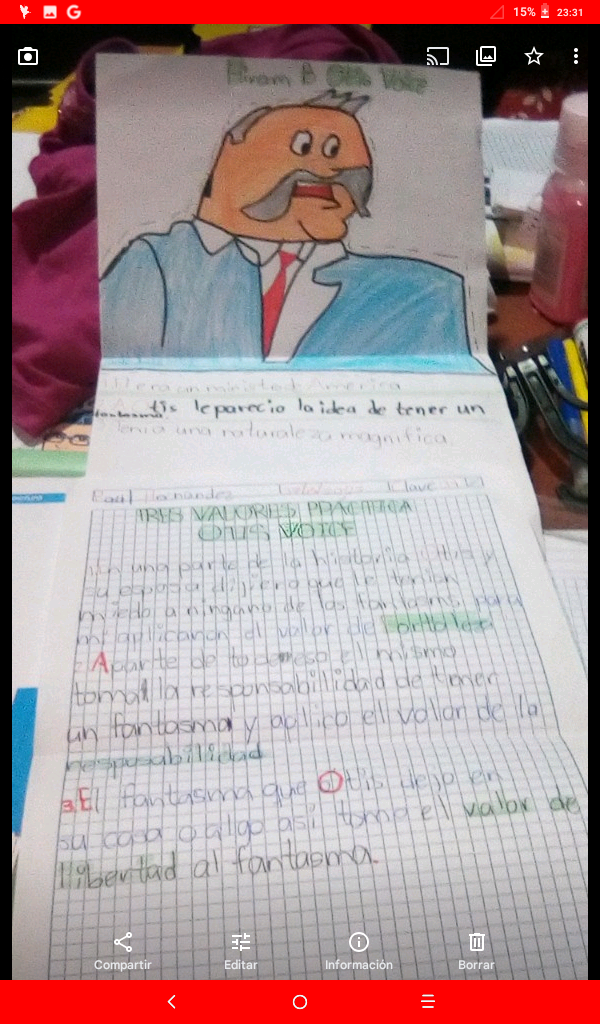 15% 23:31
Hiram B Otis Voice
era un ministro de America
A Otis le parecio la idea de tener un
fantasma
Tenia una naturaleza magnifica.
Clave
TRES VALORES PRACTICA
OTIS VOICE
En una parte de la historia Otis y
su esposa dijiero que le tenian
miedo a ningano de los fantasma, para
mi aplicaron el valor de
2. Aparte de todo eso el mismo
toma la responsabillidad de tener
un fantasma y aplico ell valor de la
resposabilidad
3. El fantasma que Otis dejo en
su casa o algo asi toma el valor de
llibertad al fantasma.
Compartir Editar Información Borrar